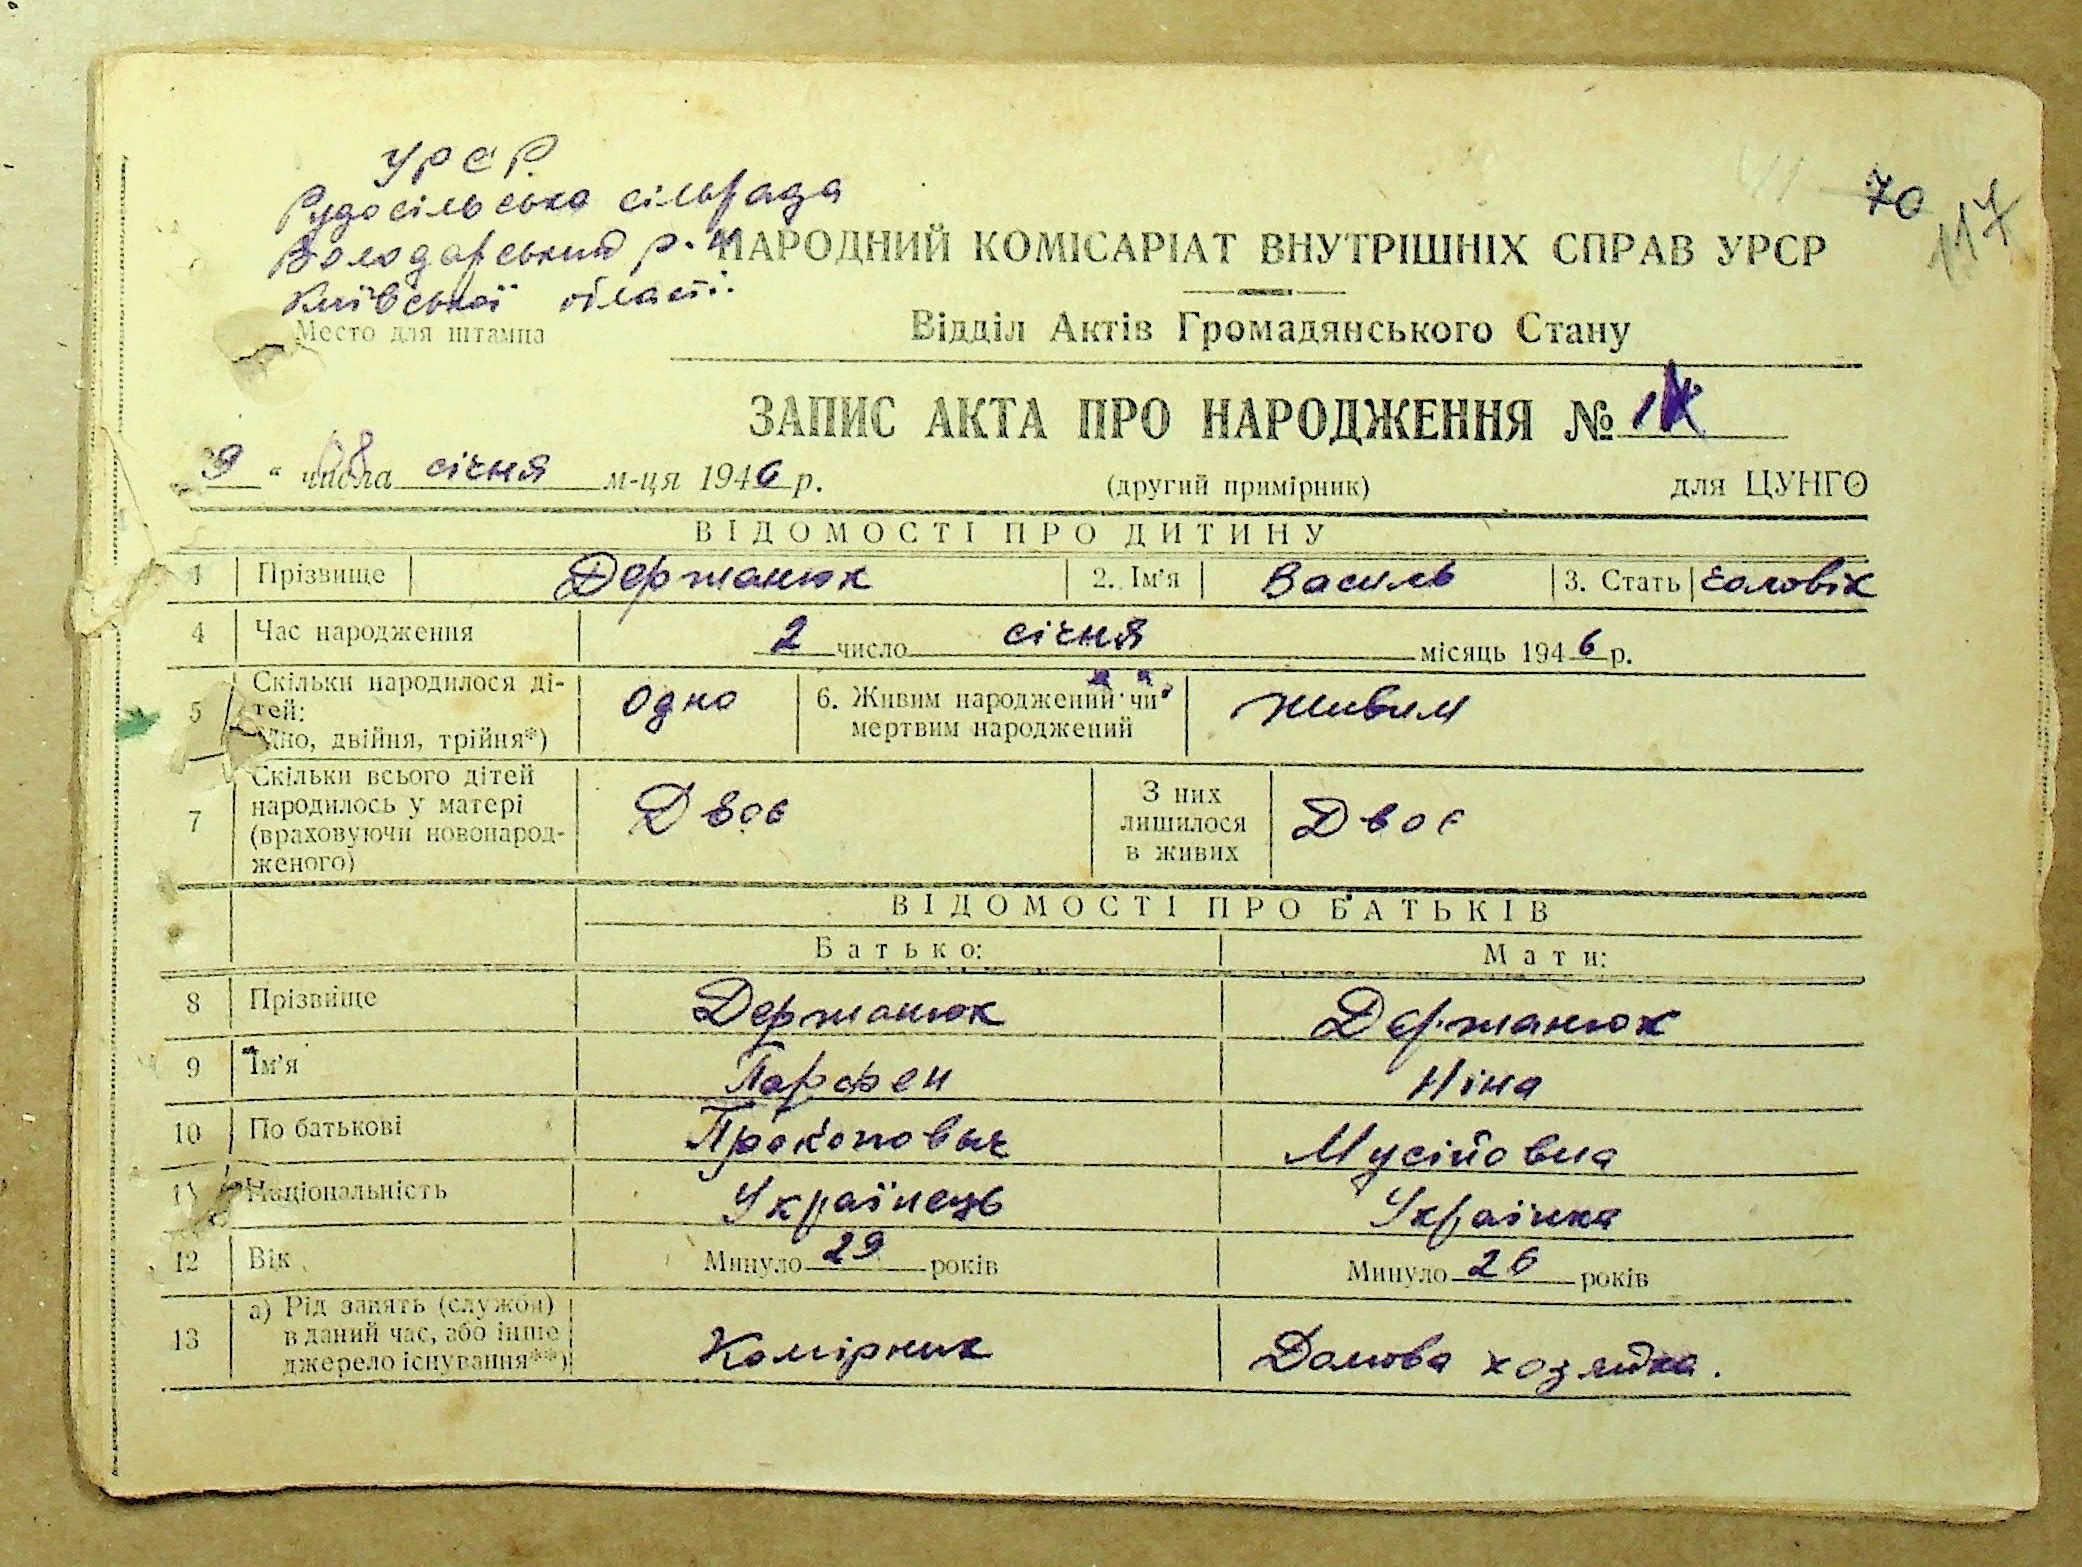 УРСР
Рудосільська сільрада
Володарський р-н
Київської області.
Место для штампа
70
117
НАРОДНИЙ КОМІСАРІАТ ВНУТРІШНІХ СПРАВ УРСР
Відділ Актів Громадянського Стану
ЗАПИС АКТА ПРО НАРОДЖЕННЯ №
9 " числа січня м-ця 1946 р. (другий примірник) для ЦУНГО
ВІДОМОСТІ ПРО ДИТИНУ
1 Прізвище Держанюк 2. Ім'я Василь 3. Стать Чоловік
4 Час народження 2 число січня місяць 1946 р.
5 Скільки народилося дітей: одно, двійня, трійня*) Одно 6. Живим народжений чи мертвим народжений живим
7 Скільки всього дітей народилось у матері (враховуючи новонародженого) Двоє З них лишилося в живих Двоє
ВІДОМОСТІ ПРО БАТЬКІВ
Батько: Мати:
8 Прізвище Держанюк Держанюк
9 Ім'я Парфен Ніна
10 По батькові Прокопович Мусійовна
11 Національність Українець Українка
12 Вік Минуло 29 років Минуло 26 років
13 а) Рід занять (служби) в даний час, або інше джерело існування**) Комірник Домова хозяйка.